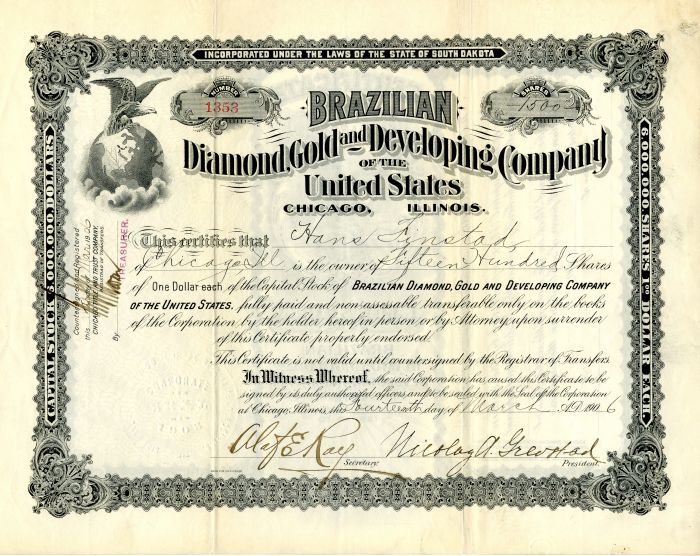 INCORPORATED UNDER THE LAWS OF THE STATE OF SOUTH DAKOTA
NUMBER
1353
SHARES
1500
BRAZILIAN
Diamond, Gold and Developing Company
OF THE
United States
CHICAGO, ILLINOIS.
CAPITAL STOCK 6,000,000 DOLLARS
6,000,000 SHARES 1.00 DOLLAR EACH
Countersigned and Registered
this
CHICAGO TITLE AND TRUST COMPANY,
REGISTRAR OF TRANSFERS.
By
TREASURER.
This certifies that Hans Finstad,
of Chicago Ill is the owner of Fifteen Hundred Shares
of One Dollar each of the Capital Stock of BRAZILIAN DIAMOND, GOLD AND DEVELOPING COMPANY
OF THE UNITED STATES, fully paid and non-assessable transferable only on the books
of the Corporation by the holder hereof in person or by Attorney upon surrender
of this Certificate properly endorsed.
This Certificate is not valid until countersigned by the Registrar of Transfers.
In Witness Whereof, the said Corporation has caused this Certificate to be
signed by its duly authorized officers and to be sealed with the Seal of the Corporation
at Chicago, Illinois, this Fourteenth day of March A.D. 1906
Olaf E. Ray Nicolay A. Grevstad
Secretary. President.